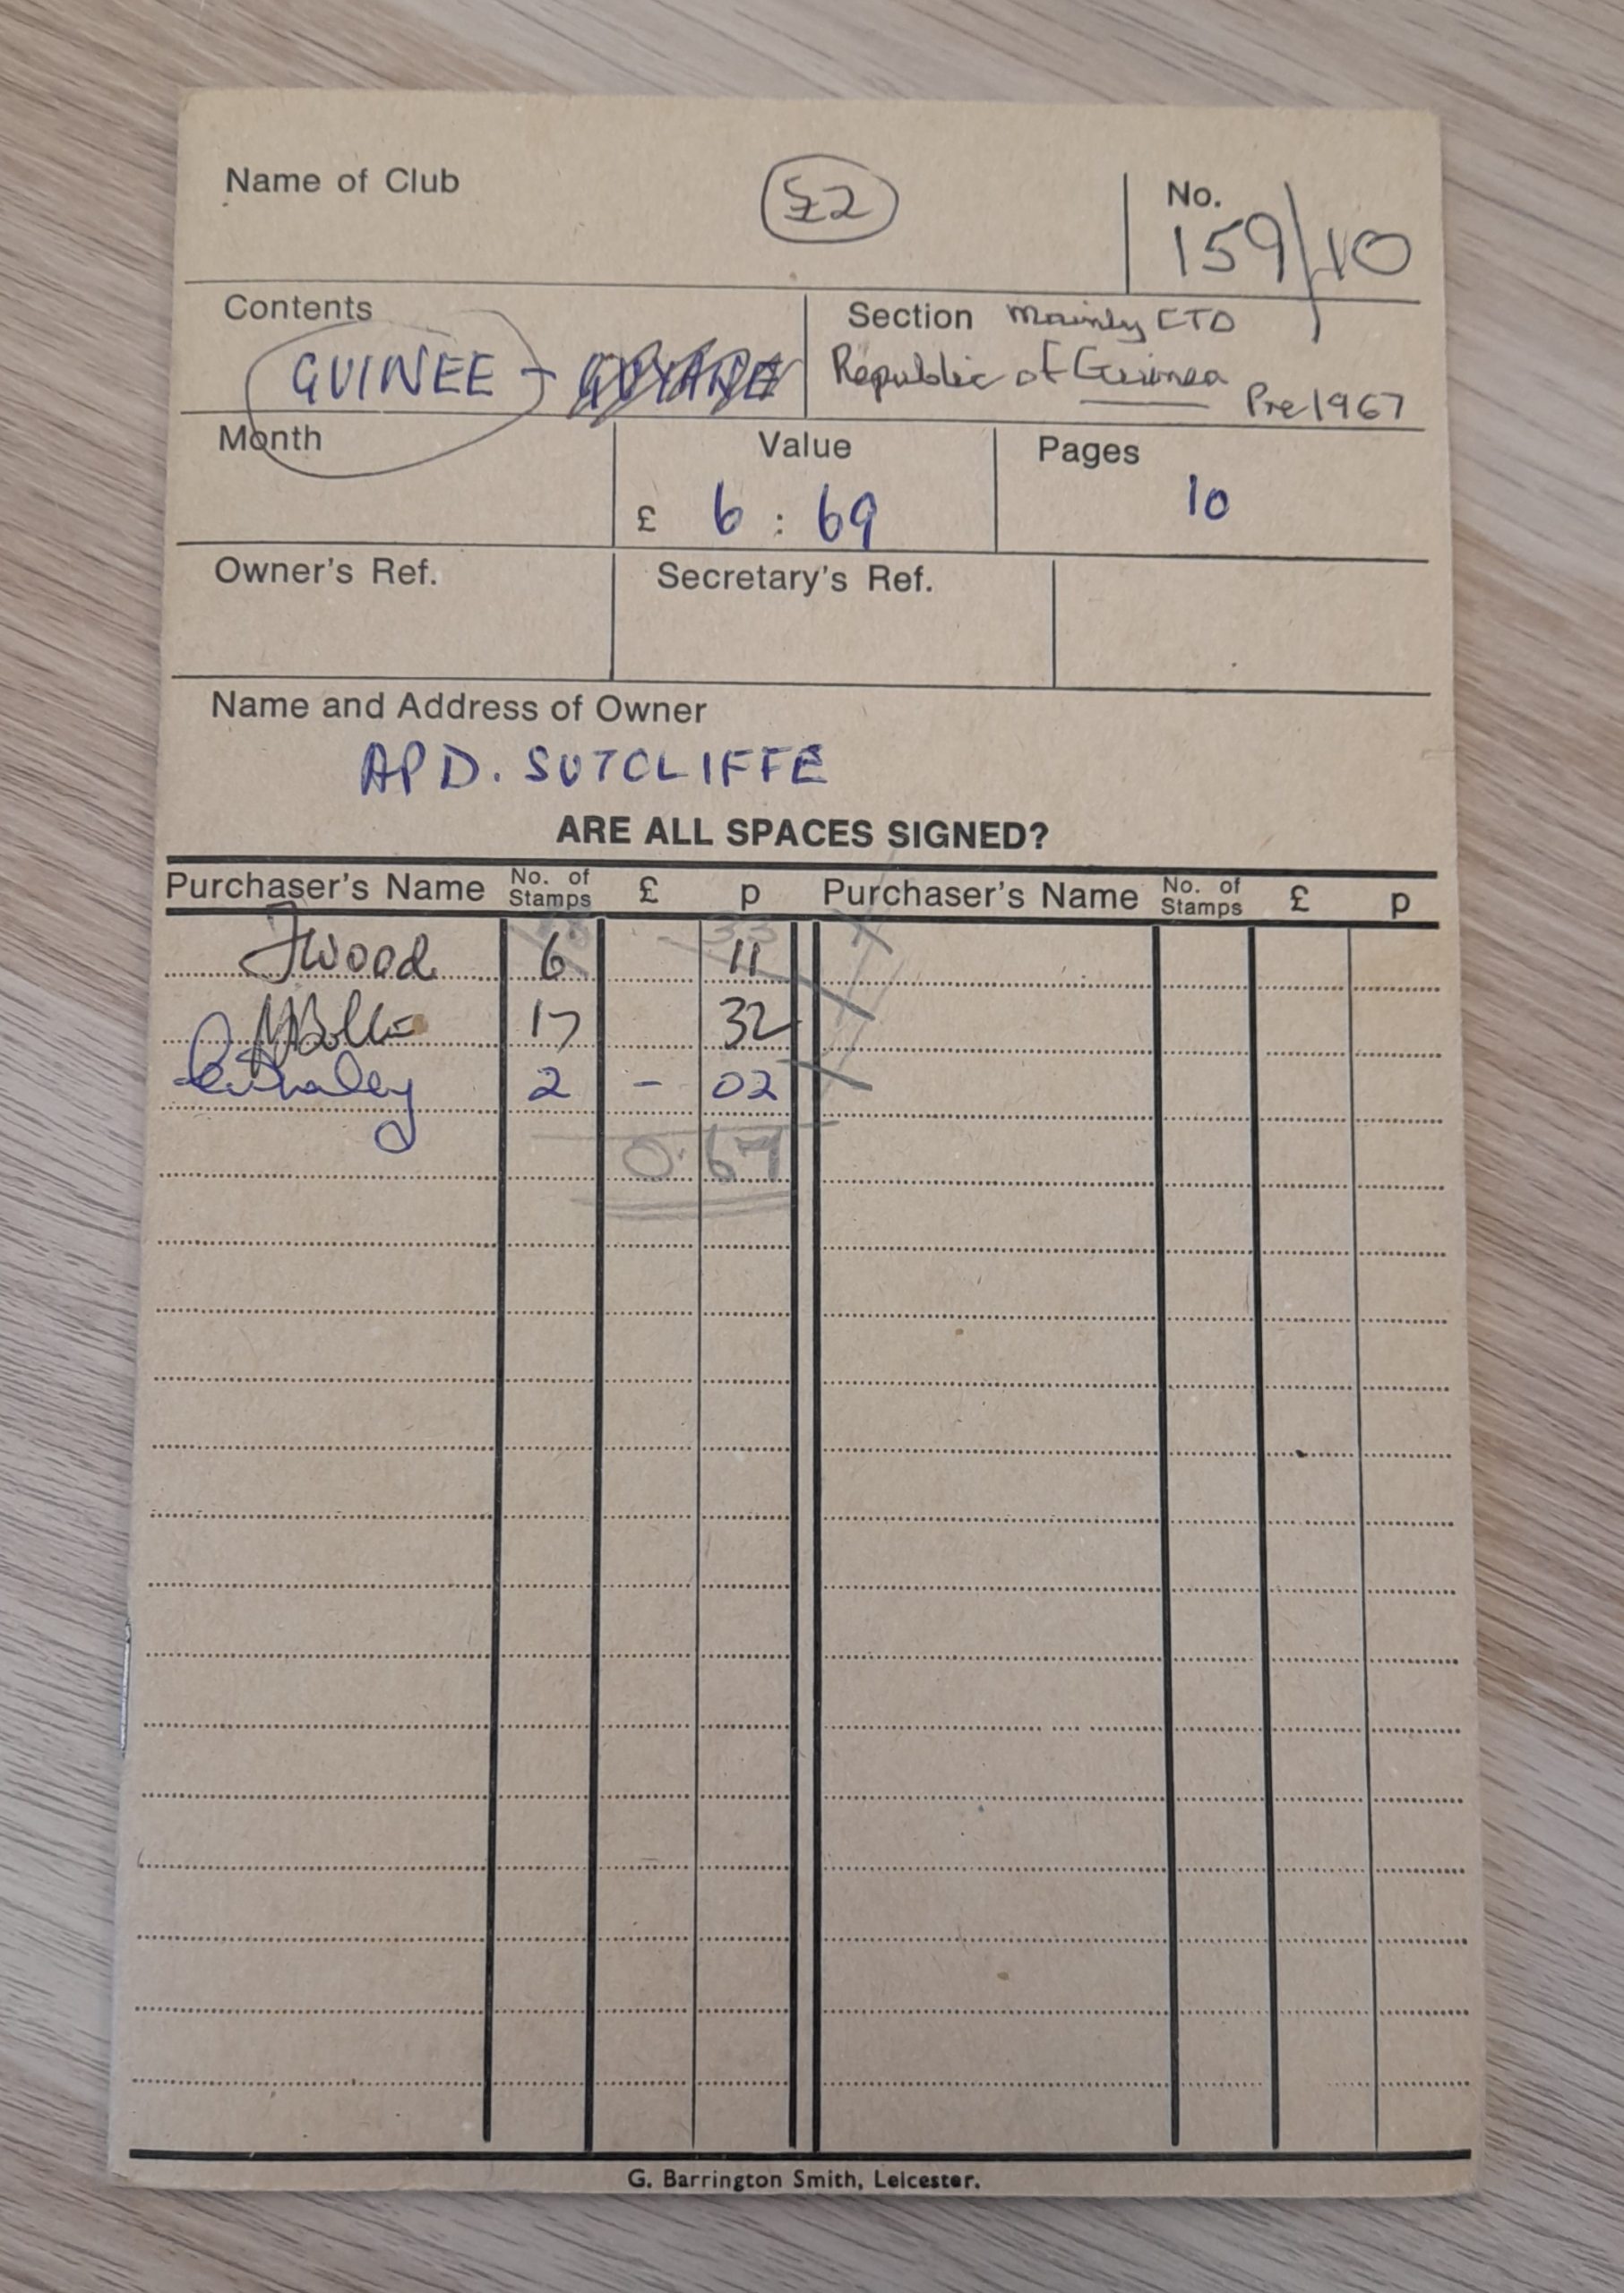 Name of Club £2 No.
159/10
Contents Section Mainly CTO
GUINEE - GUYANE Republic of Guinea Pre 1967
Month Value Pages
£ 6 : 69 10
Owner's Ref. Secretary's Ref.
Name and Address of Owner
APD. SUTCLIFFE
ARE ALL SPACES SIGNED?
Purchaser's Name No. of Stamps £ p Purchaser's Name No. of Stamps £ p
JWood 6 11
17 32
2 - 02
0.67
G. Barrington Smith, Leicester.